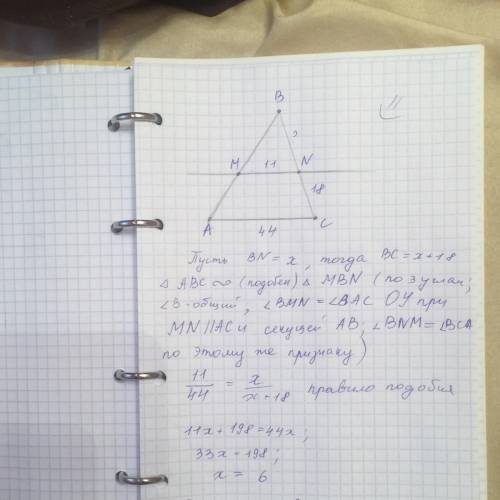 B
?
M 11 N
18
A C
44
Пусть BN = x, тогда BC = x+18
Δ ABC ∾ (подобен) Δ MBN (по 3 углам;
∠B - общий, ∠BMN = ∠BAC ОУ при
MN || AC и секущей AB; ∠BNM = ∠BCA
по этому же признаку)
11/44 = x/x+18 правило подобия
11x + 198 = 44x;
33x = 198;
x = 6